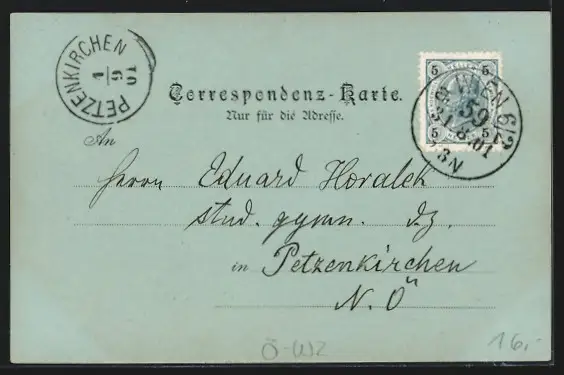 PETZENKIRCHEN
1
9
01
5 5
5 5
WIEN 6/2
59
31.8.01
Correspondenz-Karte.
Nur für die Adresse.
An
Herrn Eduard Horalek
stud. gymn. dz.
in Petzenkirchen
N. Ö
Ö-WZ
16,-